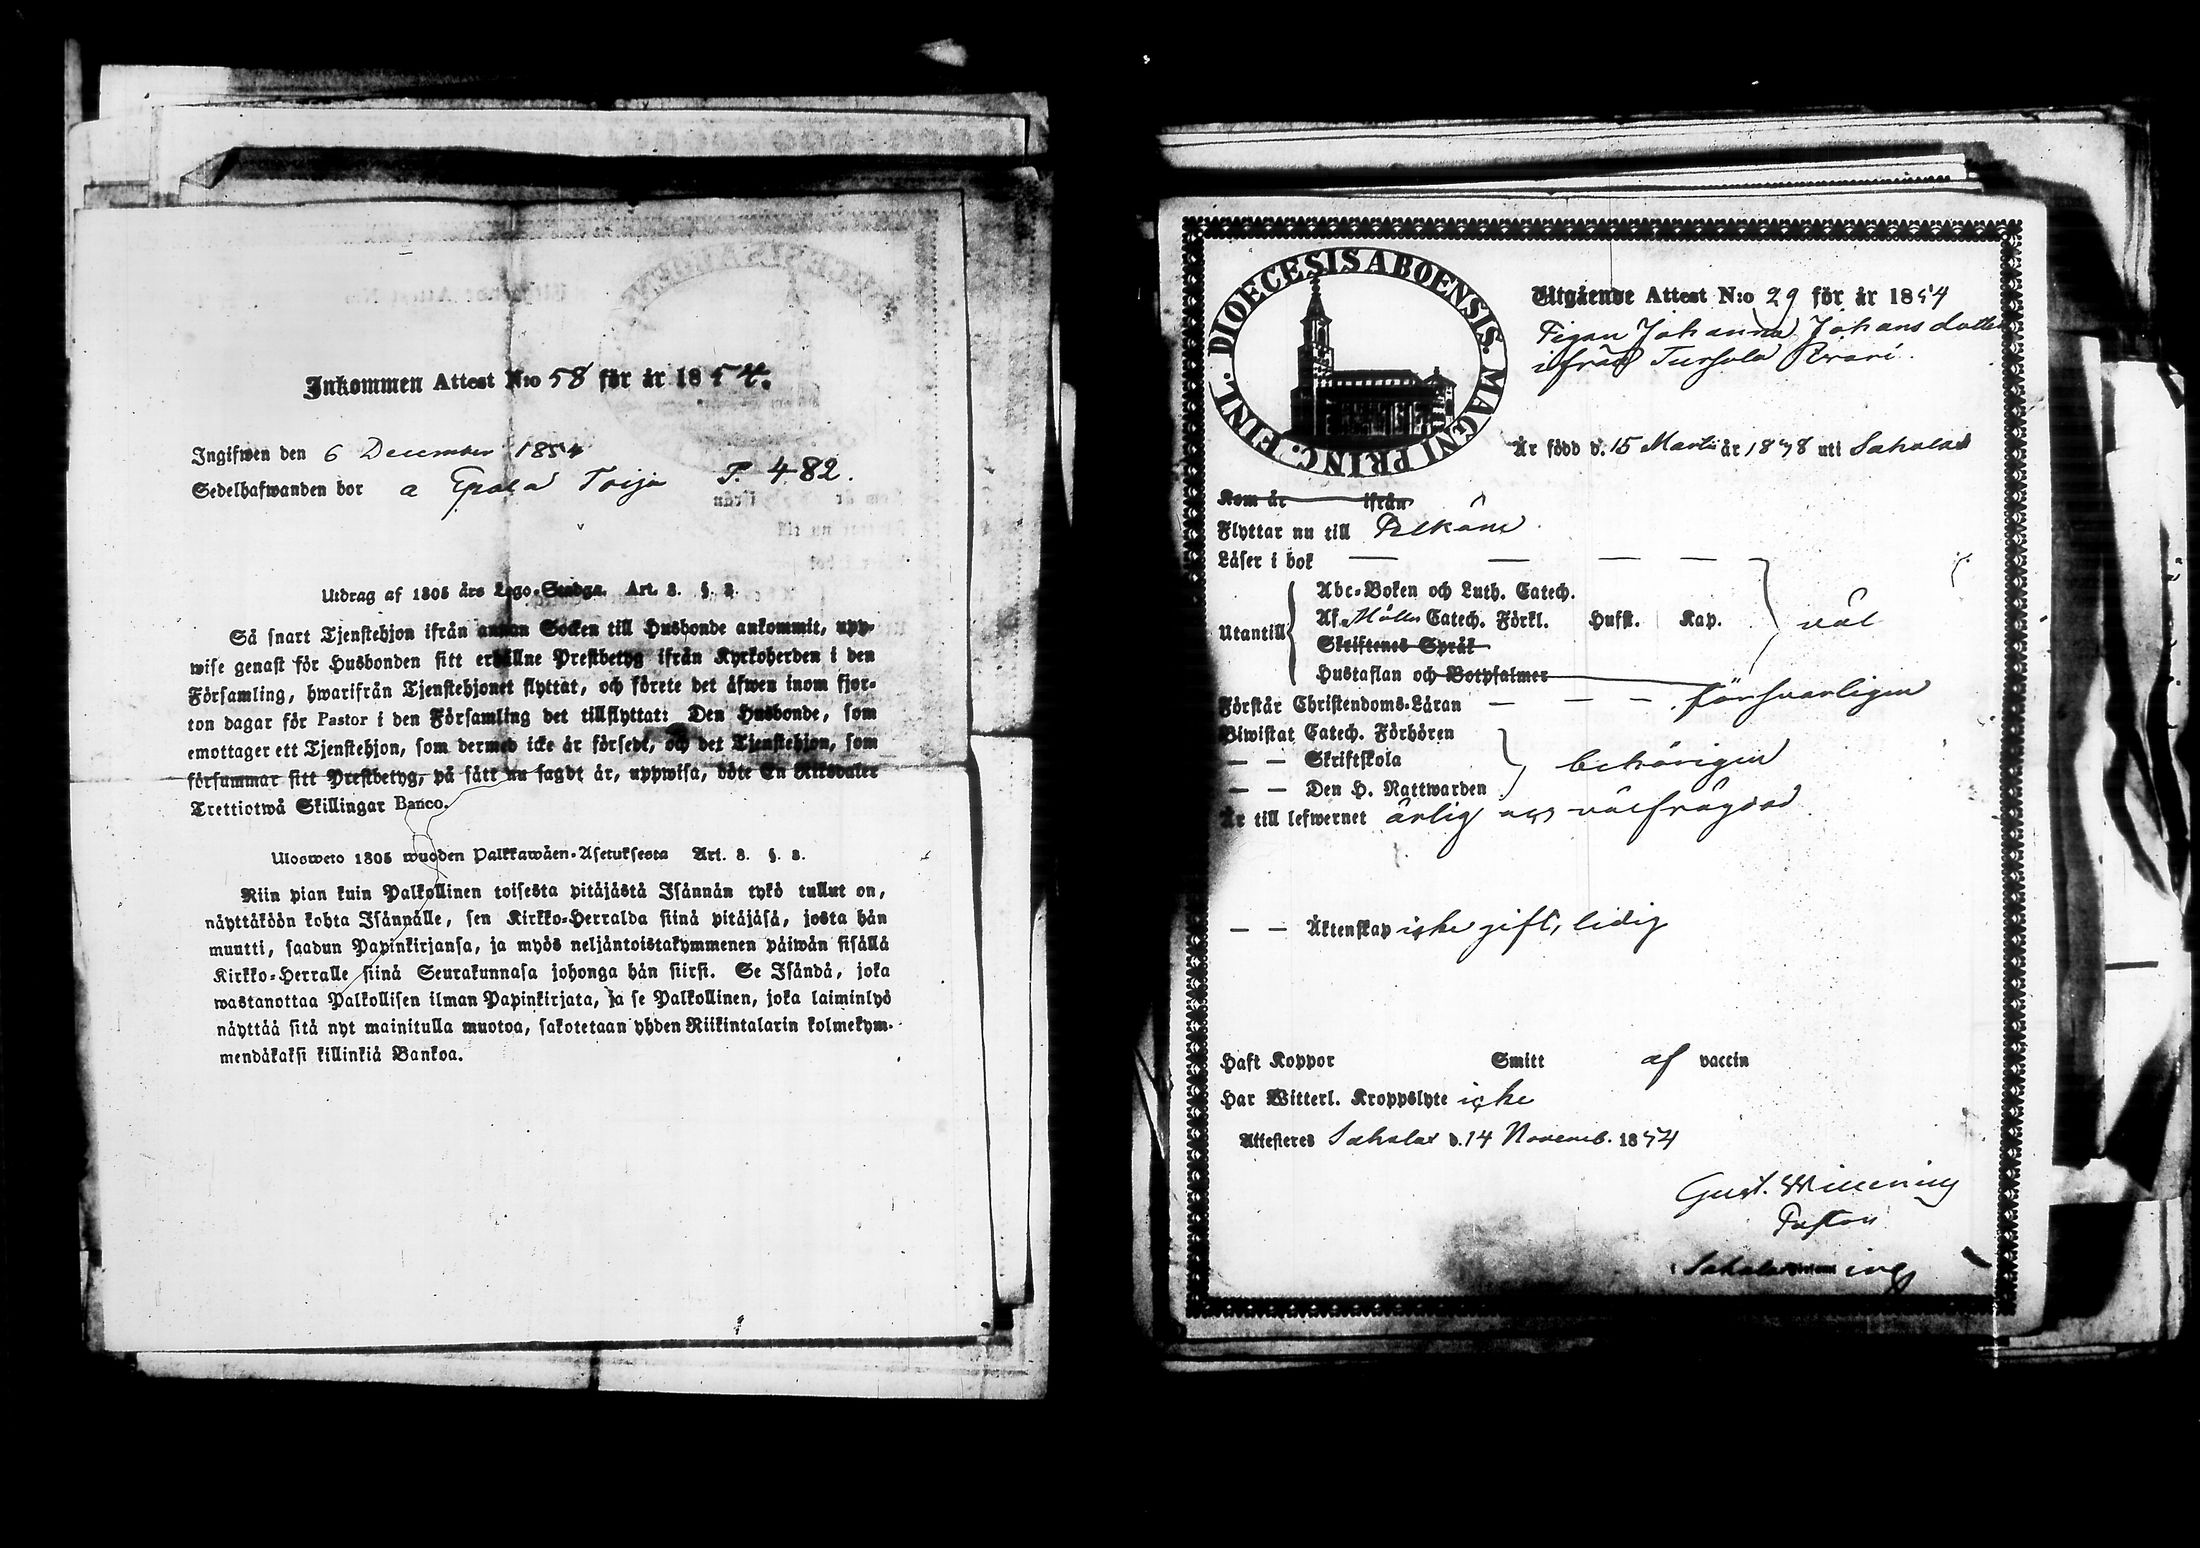 Inkommen Attest N:o 58 för år 1854.
Ingifwen den 6 December 1854
Sedelhafwanden bor a Epaala Toija P. 482.
Utdrag af 1805 års Lego-Stadga. Art. 3. §. 3.
Så snart Tjenstehjon ifrån annan Socken till Husbonde ankommit, upp-
wise genast för Husbonden sitt erhållne Prestbetyg ifrån Kyrkoherden i den
Församling, hwarifrån Tjenstehjonet flyttat, och förete det äfwen inom fjor-
ton dagar för Pastor i den Församling det tillflyttat: Den Husbonde, som
emottager ett Tjenstehjon, som dermed icke är försedt, och det Tjenstehjon, som
försummar sitt Prestbetyg, på sätt nu sagdt är, uppwisa, böte En Riksdaler
Trettiotwå Skillingar Banco.
Ulosweto 1805 wuoden Palkkawäen-Asetuksesta Art. 3. §. 3.
Niin pian kuin Palkollinen toisesta pitäjästä Isännän tykö tullut on,
näyttäköön kohta Isännälle, sen Kirkko-Herralda siinä pitäjäsä, josta hän
muutti, saadun Papinkirjansa, ja myös neljäntoistakymmenen päiwän sisällä
Kirkko-Herralle siinä Seurakunnasa johonga hän siirsi. Se Isändä, joka
wastanottaa Palkollisen ilman Papinkirjata, ja se Palkollinen, joka laiminlyö
näyttää sitä nyt mainitulla muotoa, sakotetaan yhden Riikintalarin kolmekym-
mendäkaksi killinkiä Bankoa.
DIOECESIS ABOENSIS. MAGNI PRINC. FINL.
Utgående Attest N:o 29 för år 1854
Pigan Johanna Johansdotter
ifrån Tursola
Är född d. 15 Martii år 1838 uti Sahalax
Kom år ifrån
Flyttar nu till Pelkäne
Läser i bok — — — —
Utantill
Abc-Boken och Luth. Catech.
Af Möllers Catech. Förkl. Hufst. Kap. väl
Skriftenes Språk
Hustaflan och Botpsalmer
Förstår Christendoms-Läran — — — försvarligen
Biwistat Catech. Förhören
— — Skriftskola behörigen
— — Den H. Nattwarden
Är till lefwernet ärlig och välfrägdad
— — Äktenskap icke gift, ledig
Haft Koppor Smitt af vaccin
Har Witterl. Kroppslyte icke
Attesteres Sahalax d. 14 Novemb. 1854
Gust.
Pastor
i Sahalax